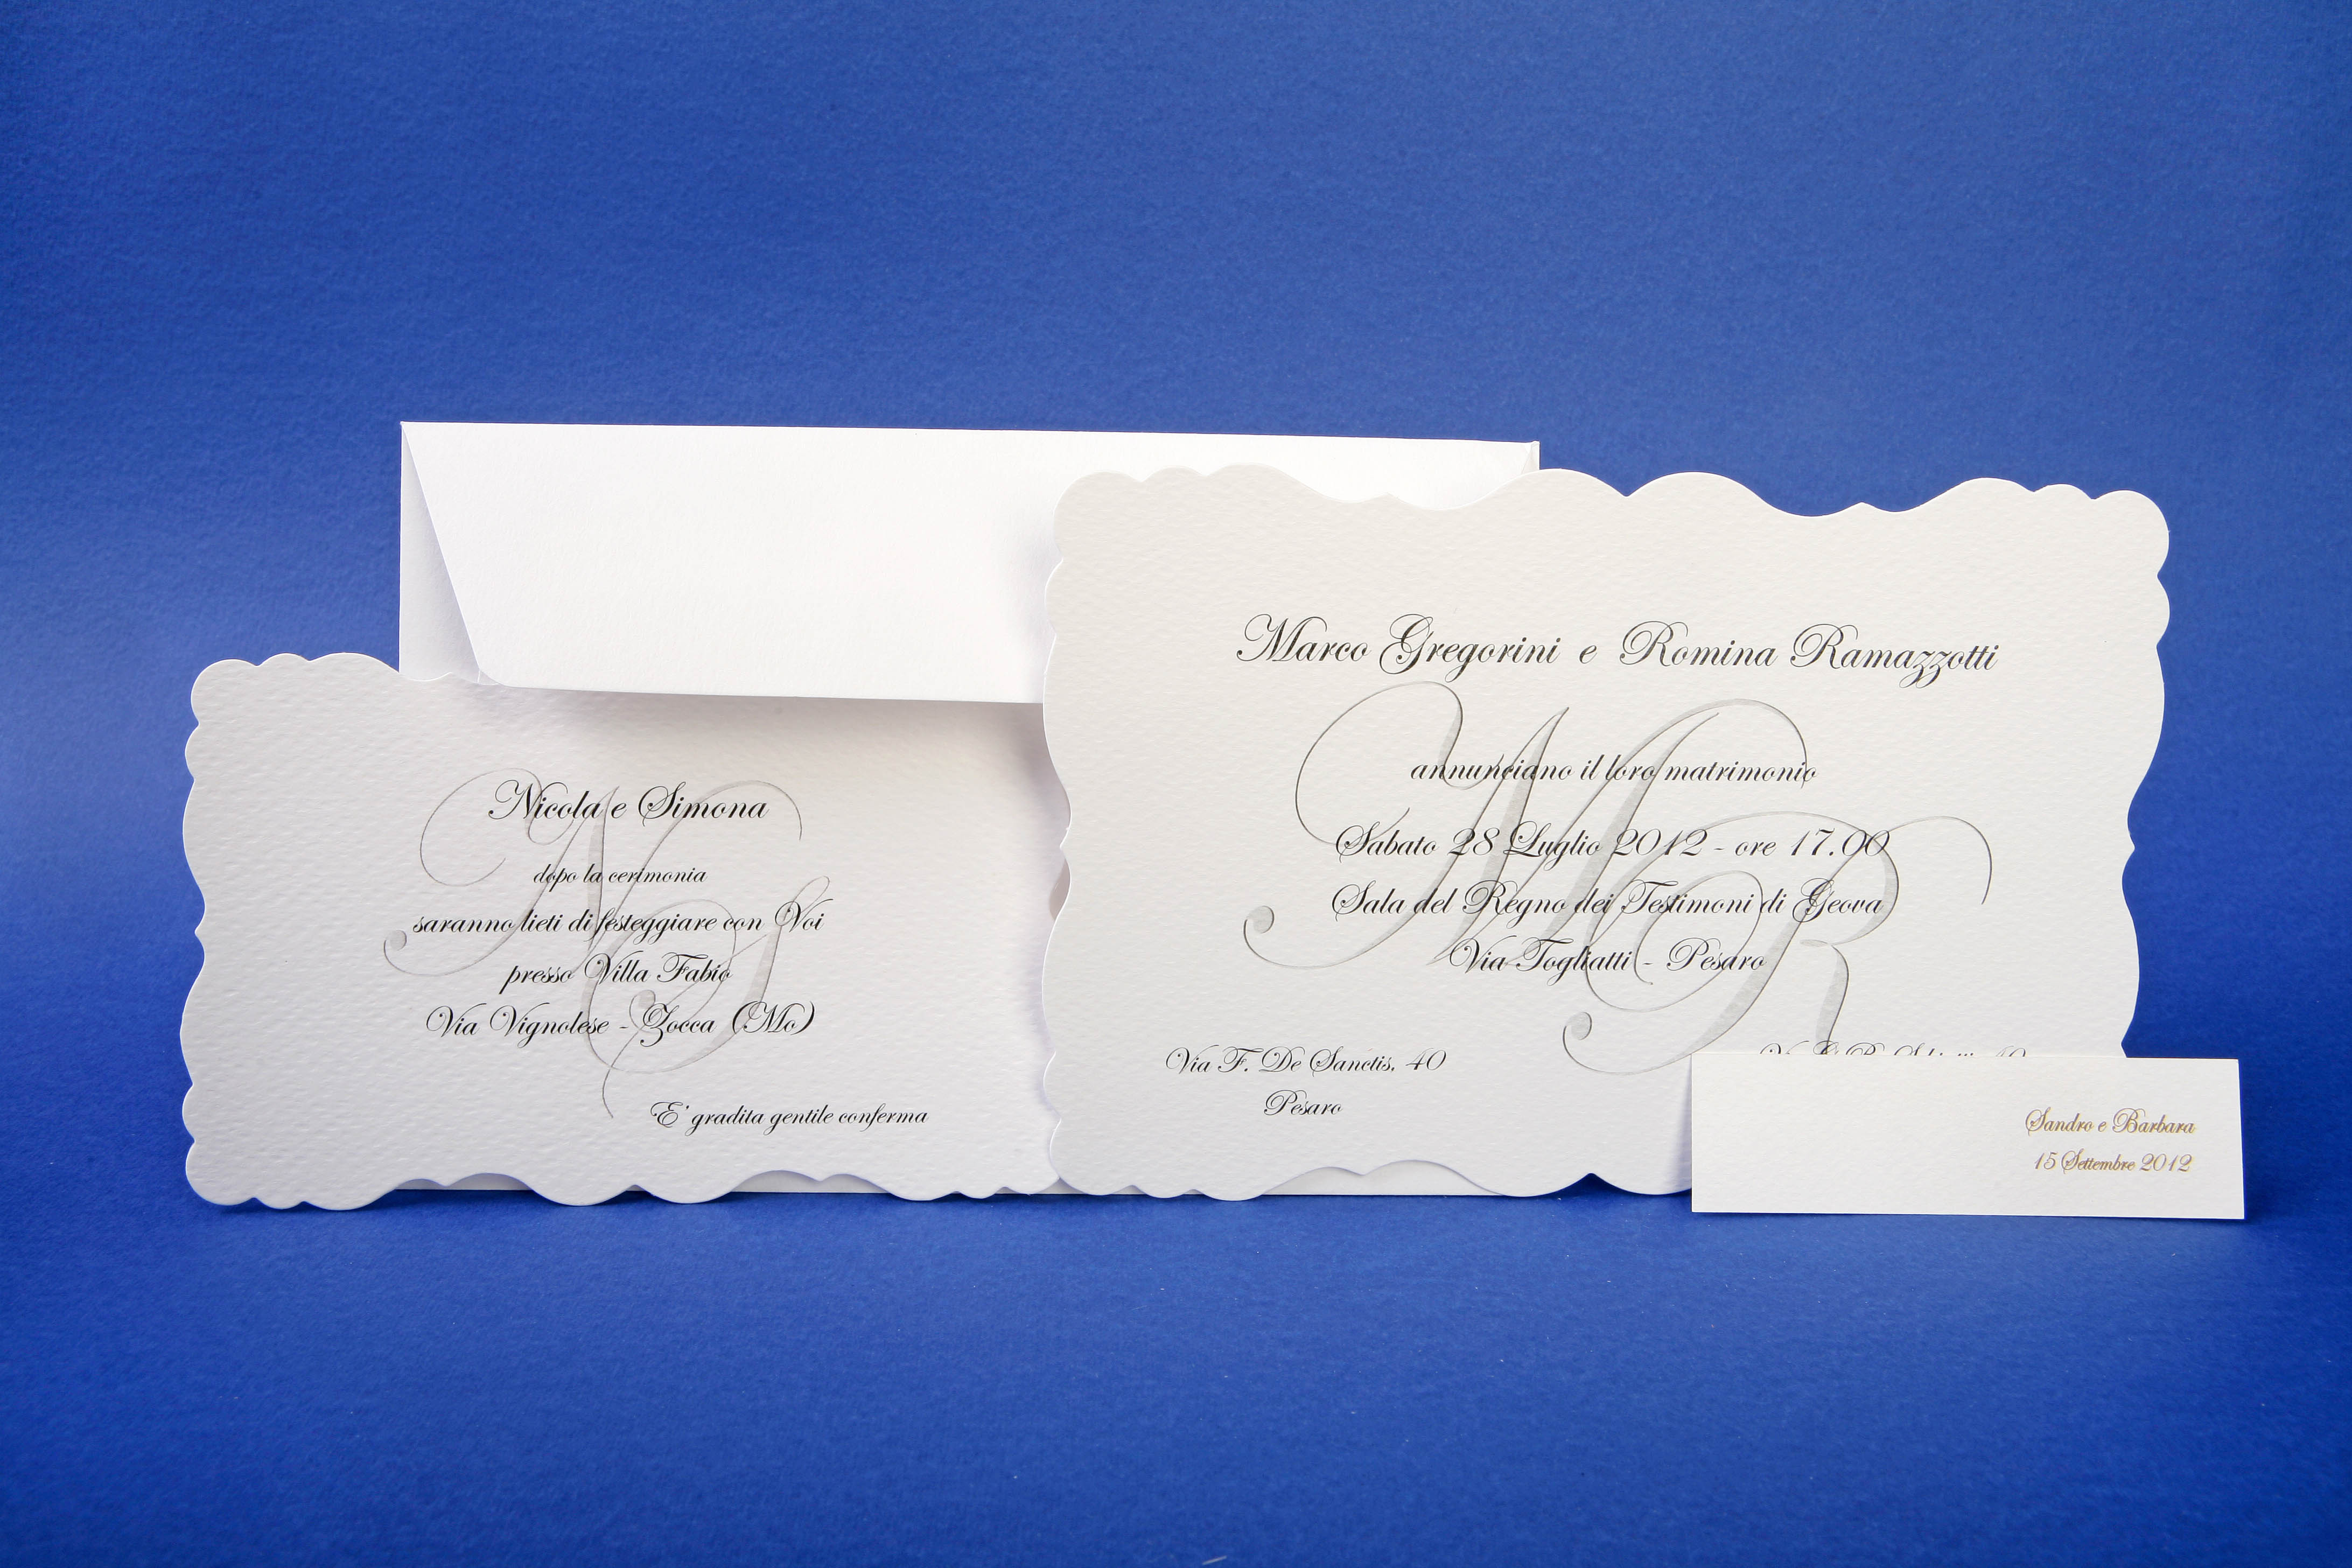 Nicola e Simona
dopo la cerimonia
saranno lieti di festeggiare con Voi
presso Villa Fabio
Via Vignolese - Zocca (Mo)
E' gradita gentile conferma
NS
Marco Gregorini e Romina Ramazzotti
annunciano il loro matrimonio
Sabato 28 Luglio 2012 - ore 17.00
Sala del Regno dei Testimoni di Geova
Via Togliatti - Pesaro
MR
Via F. De Sanctis, 40
Pesaro
Sandro e Barbara
15 Settembre 2012